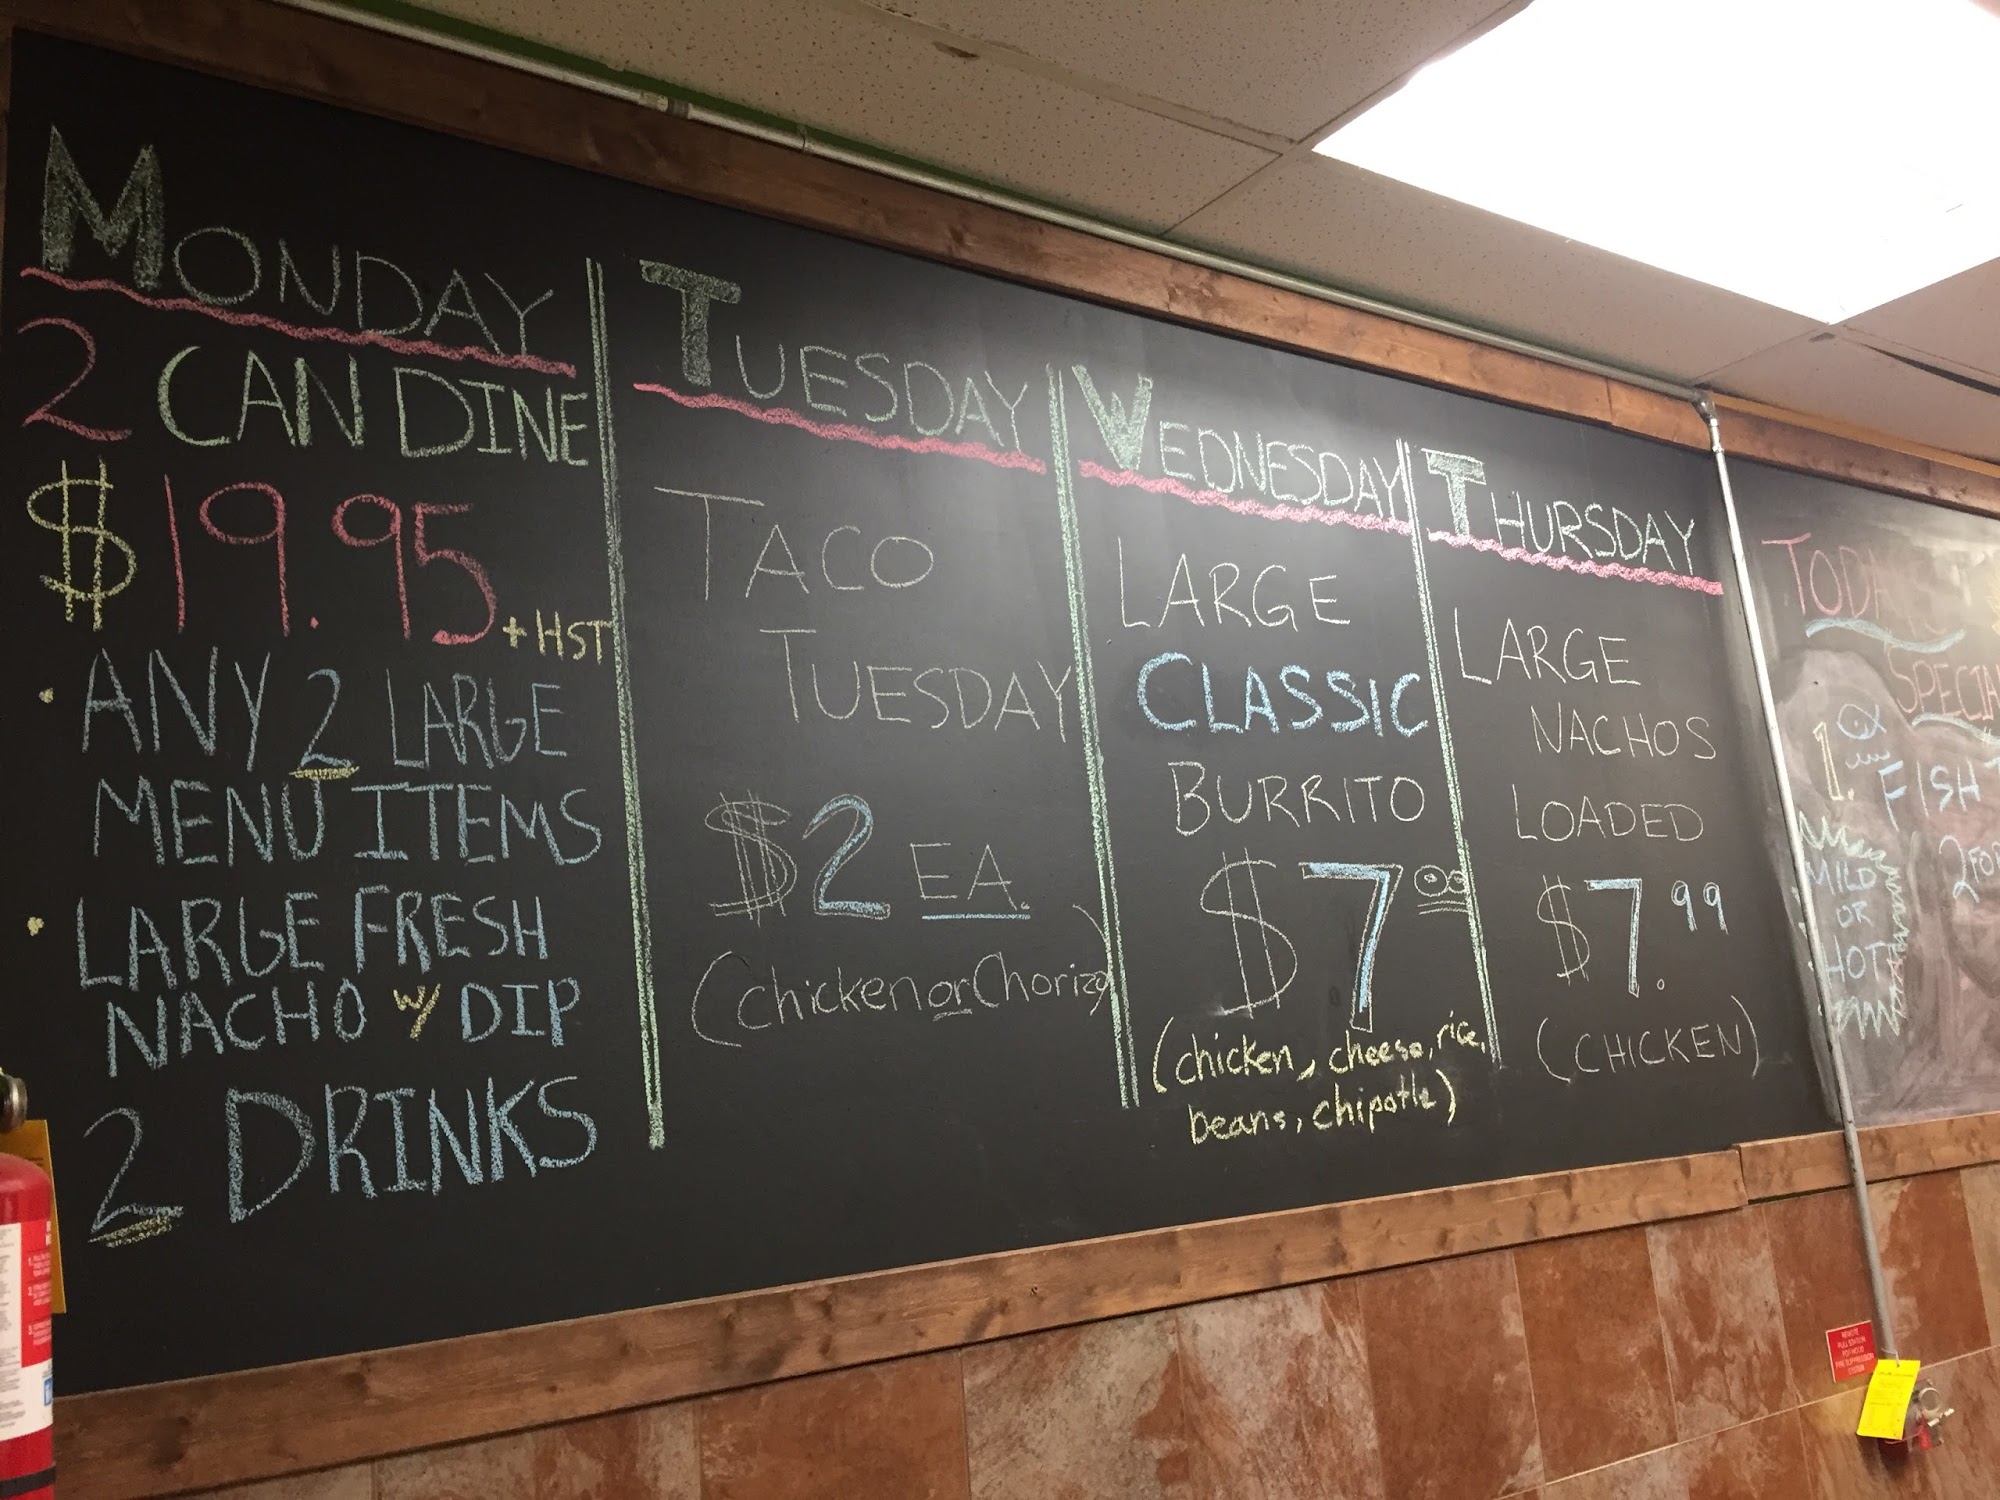 MONDAY
2 CAN DINE
$19.95 + HST
• ANY 2 LARGE
MENU ITEMS
• LARGE FRESH
NACHO w/ DIP
2 DRINKS
TUESDAY
TACO
TUESDAY
$2 EA.
(chicken or Chorizo)
WEDNESDAY
LARGE
CLASSIC
BURRITO
$7.00
(chicken, cheese, rice,
beans, chipotle)
THURSDAY
LARGE
NACHOS
LOADED
$7.99
(CHICKEN)
1. FISH
2 FOR
MILD
OR
HOT
REMOTE
PULL STATION
FOR HOOD
FIRE SUPPRESSION
SYSTEM